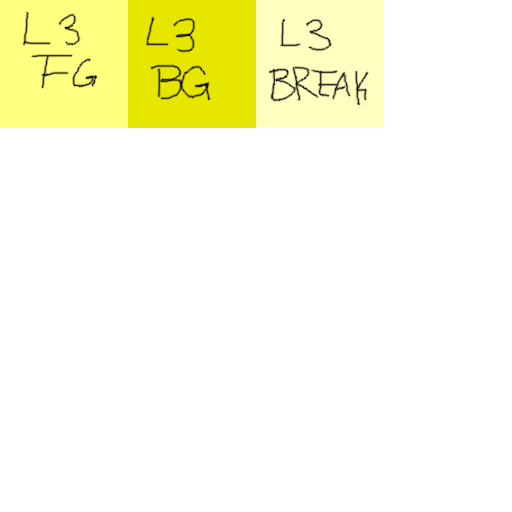 L3
FG
L3
BG
L3
BREAK